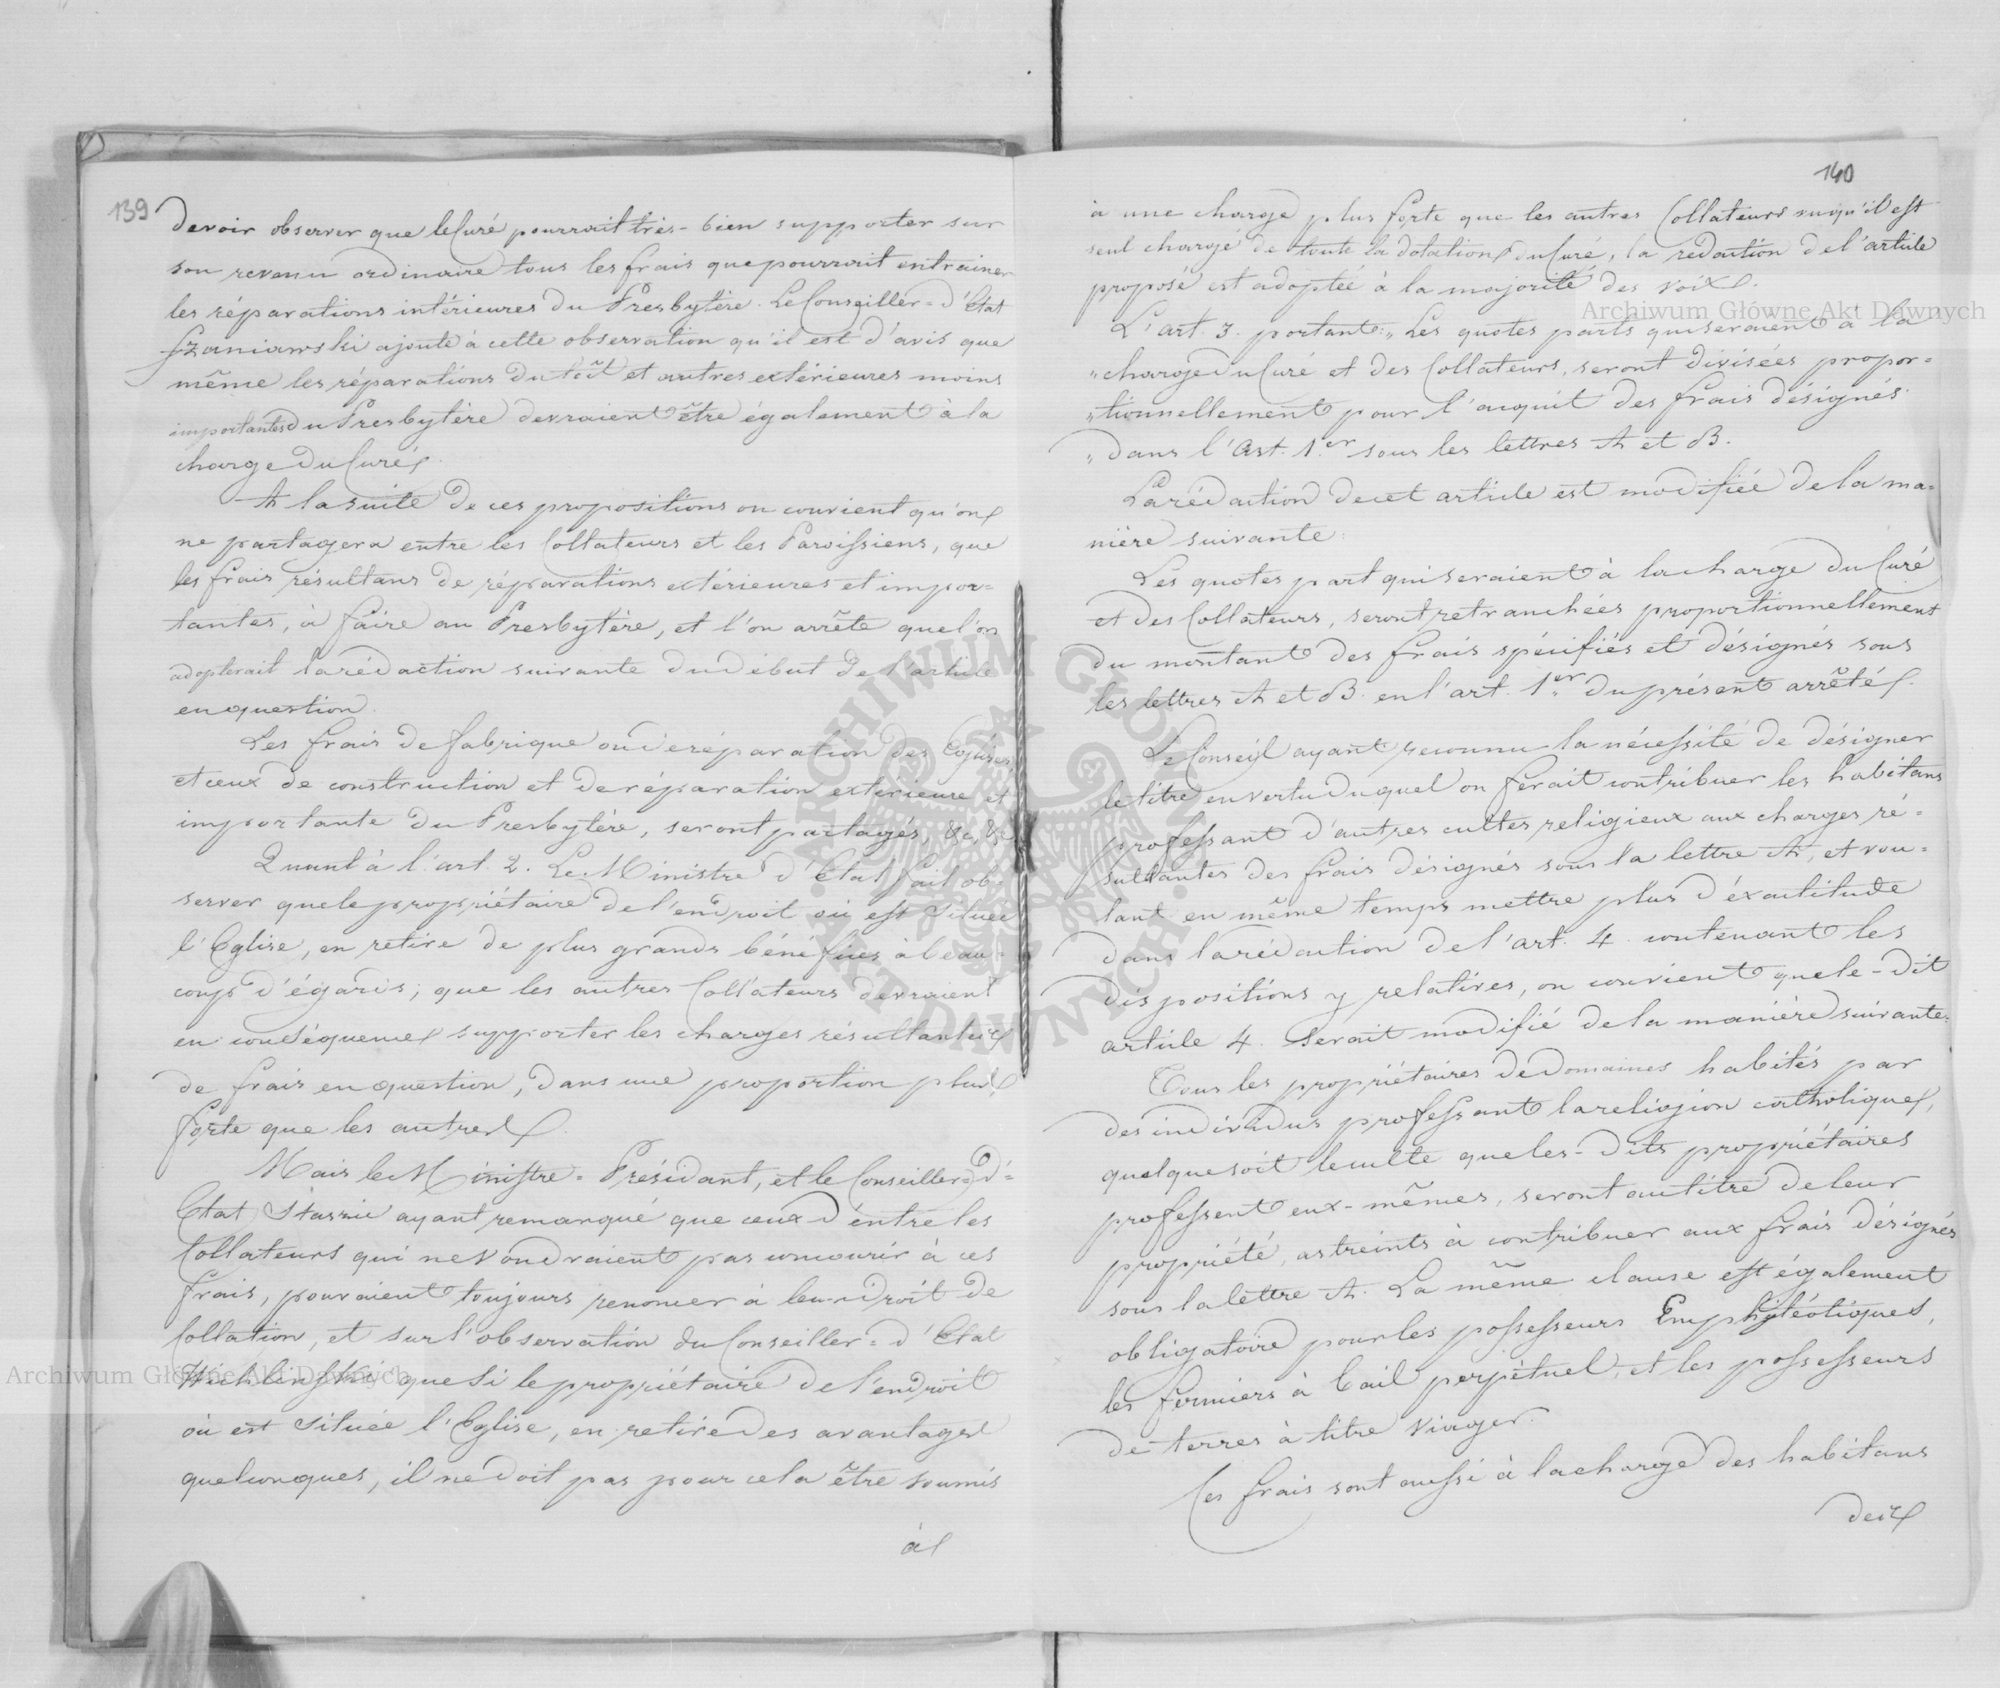 139
devoir observer que le Curé pourrait très-bien supporter sur
son revenu ordinaire tous les frais que pourrait entrainer
les réparations intérieures du Presbytère. Le Conseiller=d'Etat
Szaniawski ajoute à cette observation qu'il est d'avis que
même les réparations du toît et autres extérieures moins
importantes du Presbytère devraient être également à la
charge du Curé.
A la suite de ces propositions on convient qu'on
ne partagera entre les Collateurs et les Paroissiens, que
les frais résultans de réparations extérieures et impor=
tantes, à faire au Presbytère, et l'on arrête que l'on
adopterait la rédaction suivante du début de l'article
en question.
Les frais de fabrique ou de réparation des Eglises
et ceux de construction et de réparation extérieure et
importante du Presbytère, seront partagés, &c, &c
Quant à l'art. 2. Le Ministre d'Etat fait ob=
server que le propriétaire de l'endroit où est située
l'Eglise, en retire de plus grands bénéfices à beau=
coup d'égards; que les autres Collateurs devraient
en conséquence supporter les charges résultantes
de frais en question, dans une proportion plus
forte que les autres.
Mais le Ministre=Présidant, et le Conseiller=d'=
Etat Staszic ayant remarqué que ceux d'entre les
Collateurs qui ne voudraient pas concourir à ces
frais, pouvaient toujours renoncer à leur droit de
Collation, et sur l'observation du Conseiller=d'Etat
Wichlinski que si le propriétaire de l'endroit
où est située l'Eglise, en retire des avantages
quelconques, il ne doit pas pour cela être soumis
à
140
à une charge plus forte que les autres Collateurs puisqu'il est
seul chargé de toute la dotation du Curé, la rédaction de l'article
proposé est adoptée à la majorité des voix.
L'art. 3. portant: „Les quotes parts qui seraient à la
„charge du Curé et des Collateurs, seront divisées propor=
„tionnellement pour l'acquit des frais désignés
„dans l'Art. 1.er sous les lettres A et B.
La rédaction de cet article est modifiée de la ma=
nière suivante:
Les quotes part qui seraient à la charge du Curé
et des Collateurs, seront retranchées proportionnellement
du montant des frais spécifiés et désignés sous
les lettres A et B. en l'art. 1.er du présent arrêté.
Le Conseil ayant reconnu la nécessité de désigner
le titre en vertu duquel on ferait contribuer les habitans
professant d'autres cultes religieux aux charges ré=
sultantes des frais désignés sous la lettre A, et vou=
lant en même temps mettre plus d'éxactitude
dans la rédaction de l'art. 4. contenant les
dispositions y relatives, on convient que le-dit
article 4. serait modifié de la manière suivante:
Tous les propriétaires de domaines habités par
des individus professant la religion catholique,
quelque soit le culte que les-dits propriétaires
professent eux-mêmes, seront au titre de leur
propriété, astreints à contribuer aux frais désignés
sous la lettre A. La même clause est également
obligatoire pour les possesseurs Emphytéotiques,
les fermiers à bail perpétuel, et les possesseurs
de terres à titre viager.
Ces frais sont aussi à la charge des habitans
des
Archiwum Główne Akt Dawnych
Archiwum Główne Akt Dawnych
ARCHIWUM GŁÓWNE AKT DAWNYCH